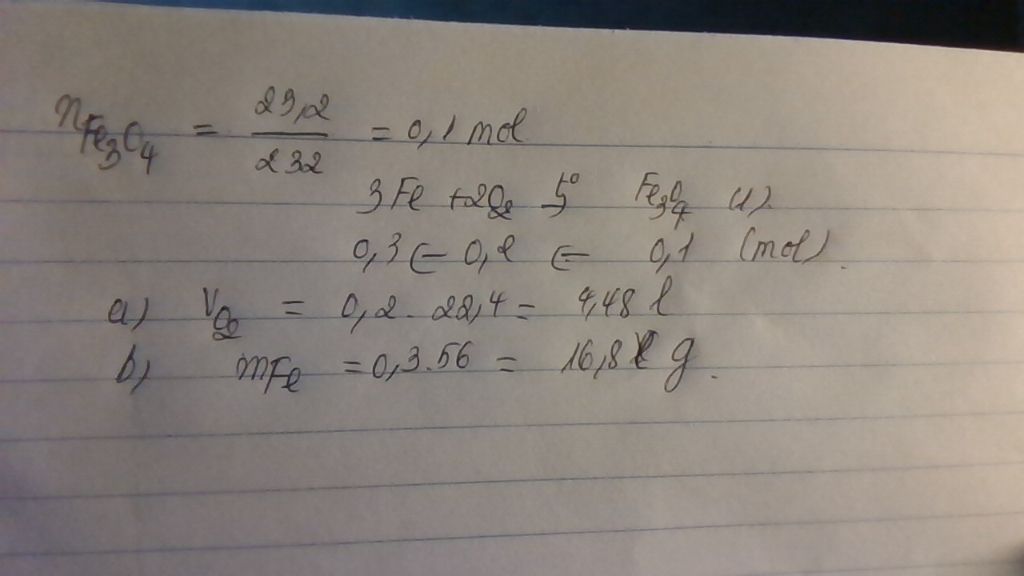 nFe3O4 = 23,2/232 = 0,1 mol
3Fe + 2O2 t°→ Fe3O4 (1)
0,3 ← 0,2 ← 0,1 (mol).
a) VO2 = 0,2 . 22,4 = 4,48 l
b) mFe = 0,3.56 = 16,8 g.